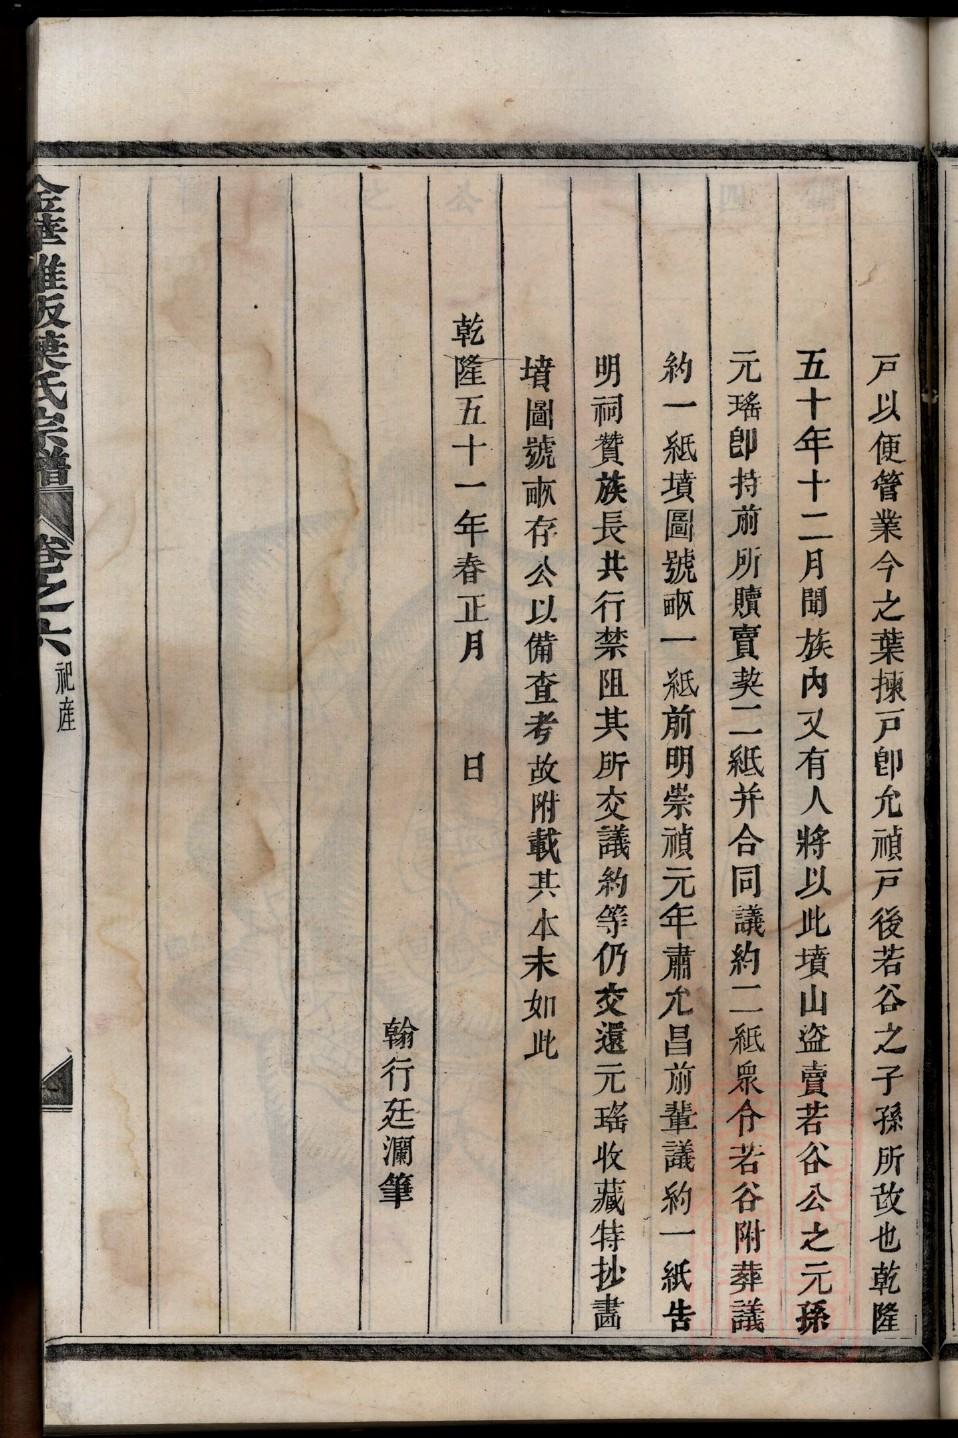 戸以便管業今之葉揀戸卽允禎戸後若谷之子孫所啟也乾隆
五十年十二月聞族內又有人將以此墳山盜賣若谷公之元孫
元瑤卽持前所贖賣契二紙并合同議約二紙衆令若谷附葬議
約一紙墳圖號畝一紙前明崇禎元年肅允昌前輩議約一紙告
明祠贊族長共行禁阻其所交議約等仍交還元瑤收藏特抄畵
墳圖號畝存公以備查考故附載其本末如此
乾隆五十一年春正月　日
翰行廷瀾筆
金華雅畈葉氏宗譜 卷之六 祀産